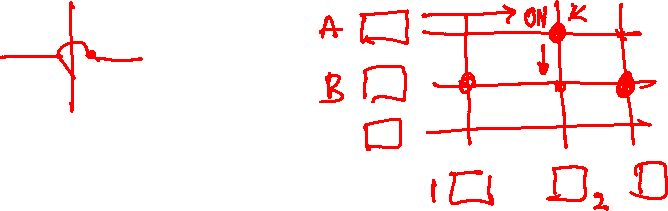 A
ON K
B
1
2